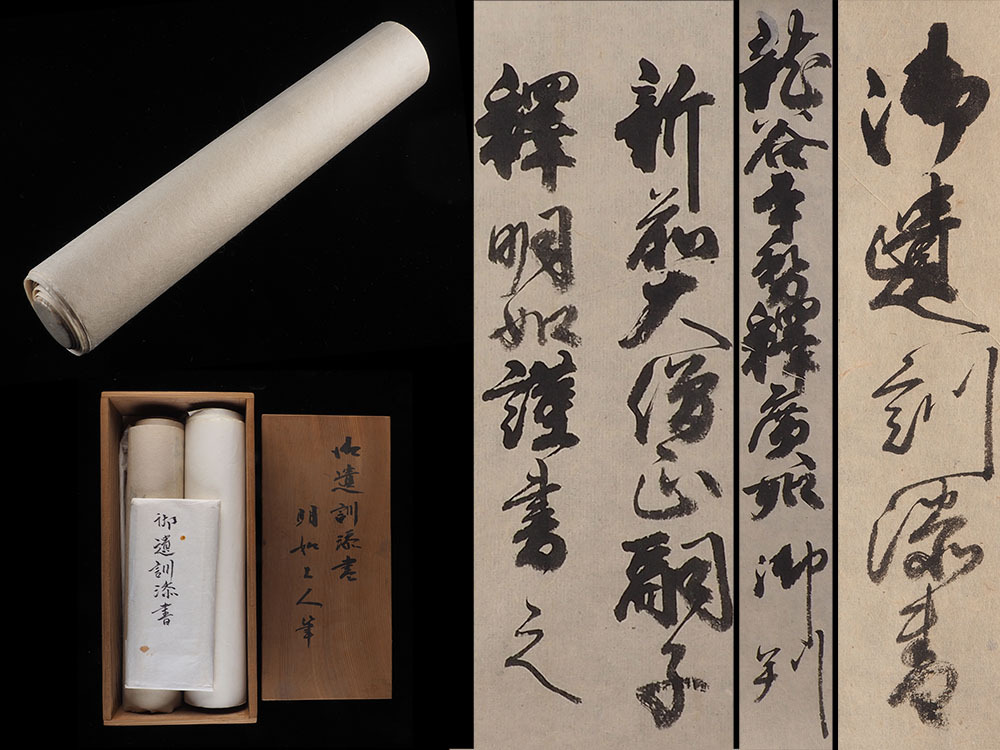 御遺訓添書
龍谷寺務釋廣如 御判
新前大僧正嗣子
釋明如謹書之
御遺訓添書
明如上人筆
御遺訓添書